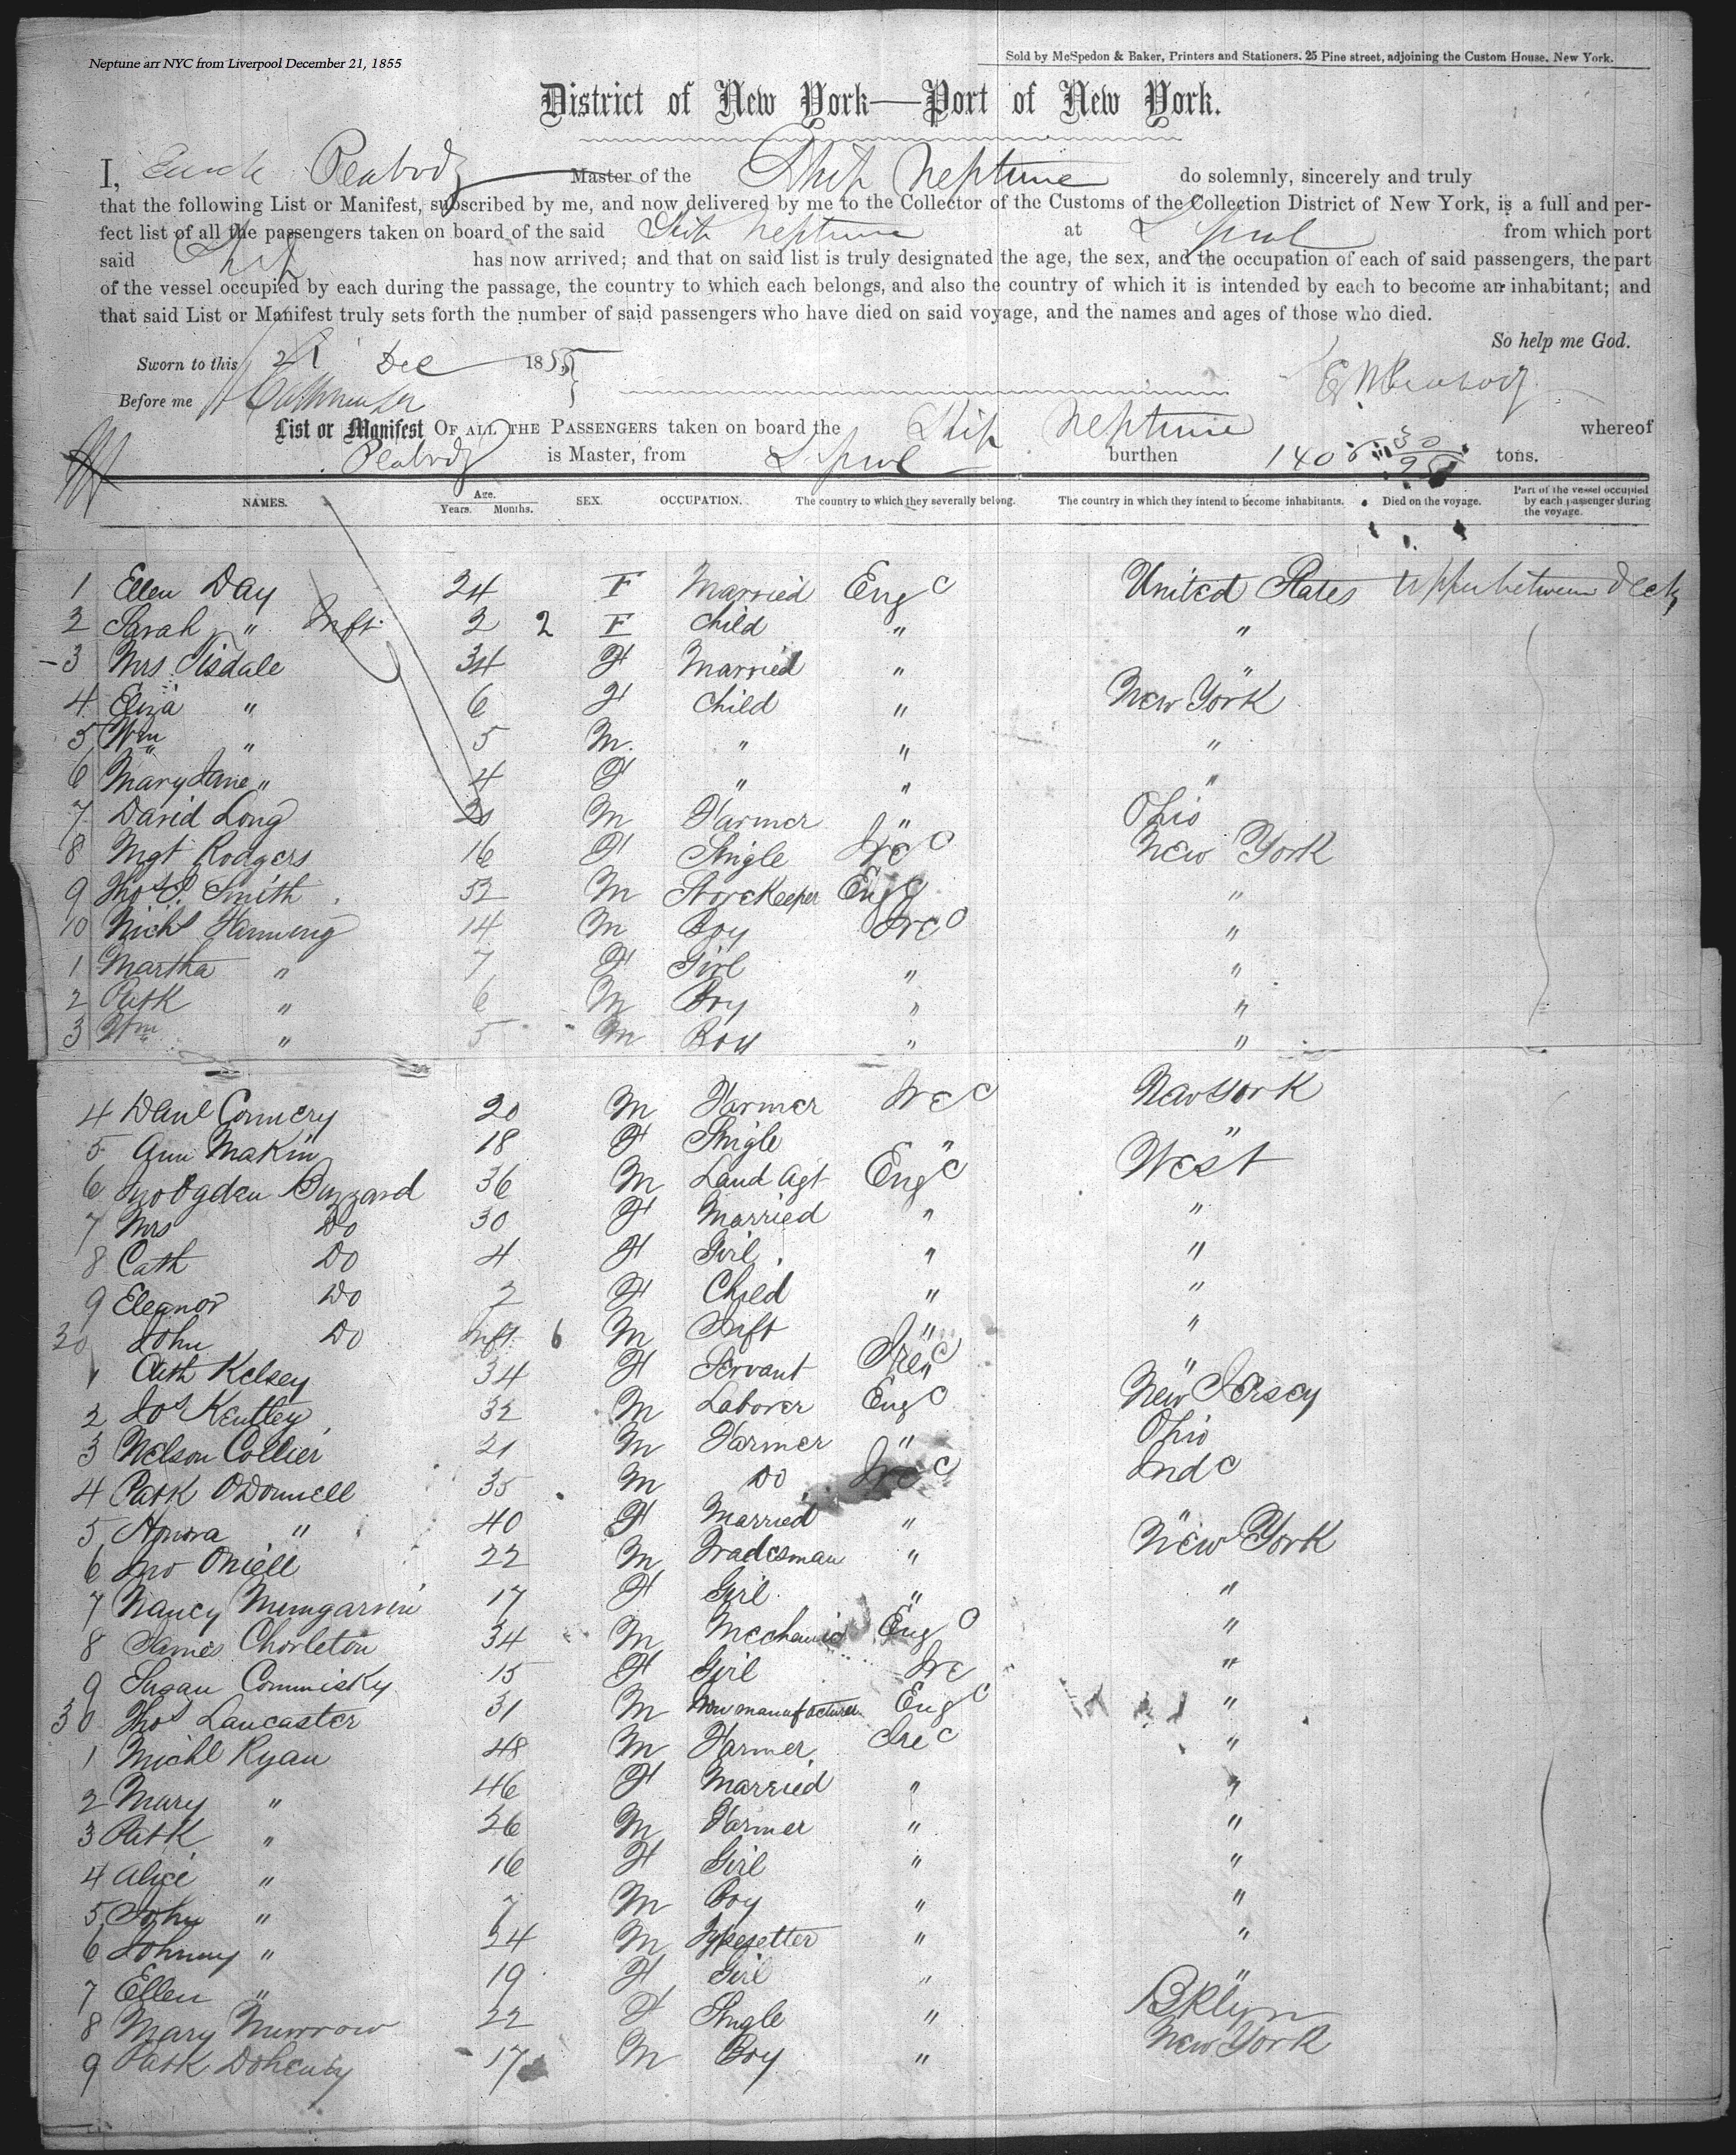 Neptune arr NYC from Liverpool December 21, 1855
Sold by McSpedon & Baker, Printers and Stationers, 25 Pine street, adjoining the Custom House, New York.
District of New York—Port of New York.
I, Peabody Master of the Ship Neptune do solemnly, sincerely and truly
that the following List or Manifest, subscribed by me, and now delivered by me to the Collector of the Customs of the Collection District of New York, is a full and per-
fect list of all the passengers taken on board of the said Ship Neptune at L'pool from which port
said Ship has now arrived; and that on said list is truly designated the age, the sex, and the occupation of each of said passengers, the part
of the vessel occupied by each during the passage, the country to which each belongs, and also the country of which it is intended by each to become an inhabitant; and
that said List or Manifest truly sets forth the number of said passengers who have died on said voyage, and the names and ages of those who died.
So help me God.
Sworn to this 21 Dec 1855
Before me E Peabody
List or Manifest OF ALL THE PASSENGERS taken on board the Ship Neptune whereof
Peabody is Master, from L'pool burthen 1406 30/95 tons.
NAMES. Age. Years. Months. SEX. OCCUPATION. The country to which they severally belong. The country in which they intend to become inhabitants. Died on the voyage. Part of the vessel occupied by each passenger during the voyage.
1 Ellen Day 24 F Married Eng United States Upper between Deck
2 Sarah " Inft. 2 2 F Child " "
3 Mrs Tisdale 34 F Married " "
4 Eliza " 6 F Child " New York
5 Wm " 5 M " " "
6 Mary Jane " 4 F " " "
7 David Long 20 M Farmer " Ohio
8 Mgt Rodgers 16 F Single Ire New York
9 Thos Smith 52 M Storekeeper Eng "
10 Michl Hanning 14 M Boy Ire "
1 Martha " 7 F Girl " "
2 Patk " 6 M Boy " "
3 Wm " 5 M Boy " "
4 Danl Connery 20 M Farmer Ire New York
5 Ann Makin 18 F Single " "
6 Jno Ogden Buzzard 36 M Land Agt Eng West
7 Mrs Do 30 F Married " "
8 Cath Do 4 F Girl " "
9 Eleanor Do 2 F Child " "
20 John Do Inft 6 M Inft " "
1 Cath Kelsey 34 F Servant Ire "
2 Jos Kentley 32 M Laborer Eng New Jersey
3 Nelson Collier 21 M Farmer " Ohio
4 Patk O'Donnell 35 M Do Ire Ind
5 Honora " 40 F Married " "
6 Jno Oniell 22 M Tradesman " New York
7 Nancy 17 F Girl " "
8 James Chorleton 34 M Mechanic Eng "
9 Susan Commisky 15 F Girl Ire "
30 Thos Lancaster 31 M manufacturer Eng "
1 Michl Ryan 48 M Farmer Ire "
2 Mary " 46 F Married " "
3 Patk " 26 M Farmer " "
4 Alice " 16 F Girl " "
5 John " 7 M Boy " "
6 Johnny " 24 M Typesetter " "
7 Ellen " 19 F Girl " "
8 Mary Murrow 22 F Single " Bklyn
9 Patk Doherty 17 M Boy " New York